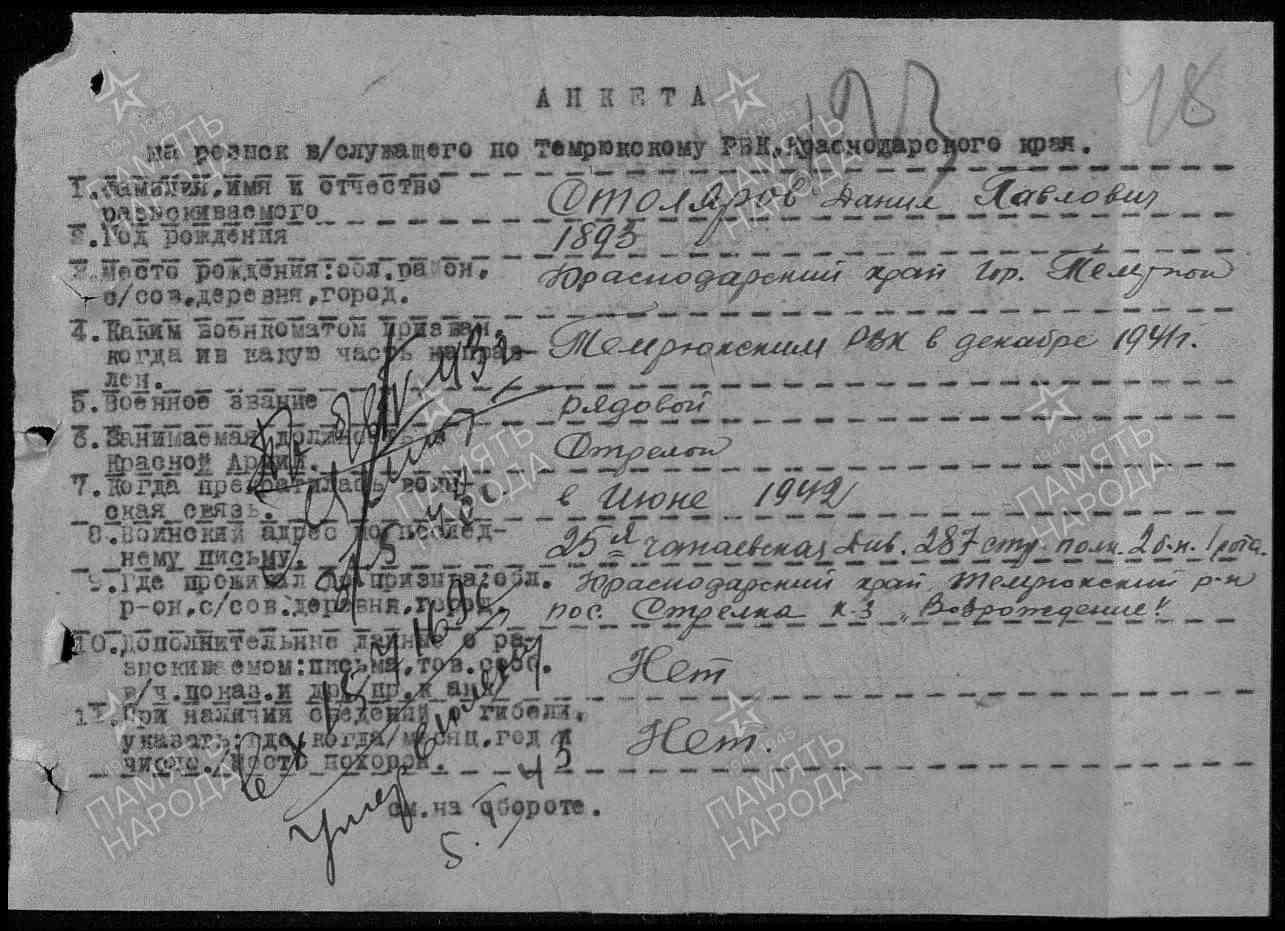 48
АНКЕТА
на розыск в/служащего по Темрюкскому РВК, Краснодарского края.
1. Фамилия, имя и отчество
разыскиваемого
Столяров Данил Павлович
2. Год рождения
1893
3. Место рождения: обл. район,
с/сов. деревня, город.
Краснодарский край гор. Темрюк
4. Каким военкоматом призван,
когда и в какую часть направ-
лен.
Темрюкским РВК в декабре 1941г.
5. Военное звание
рядовой
6. Занимаемая должность в
Красной Армии.
Стрелок
7. Когда прекратилась воин-
ская связь.
в Июне 1942
8. Воинский адрес по послед-
нему письму.
25я чапаевская див. 287 стр. полк. 2 б-н. 1 рота.
9. Где проживал до призыва: обл.
р-он, с/сов. деревня, город.
Краснодарский край Темрюкский р-н
пос. Стрелка к-з „Возрождение"
10. Дополнительные данные о ра-
зыскиваемом: письма, тов. сооб.
в/ч. показ. и др. пр. к анк.
Нет
11. При наличии сведений о гибели,
указать: где, когда/месяц, год и
число./место похорон.
Нет.
см. на обороте.
умер в плену
ПАМЯТЬ НАРОДА
1941 1945